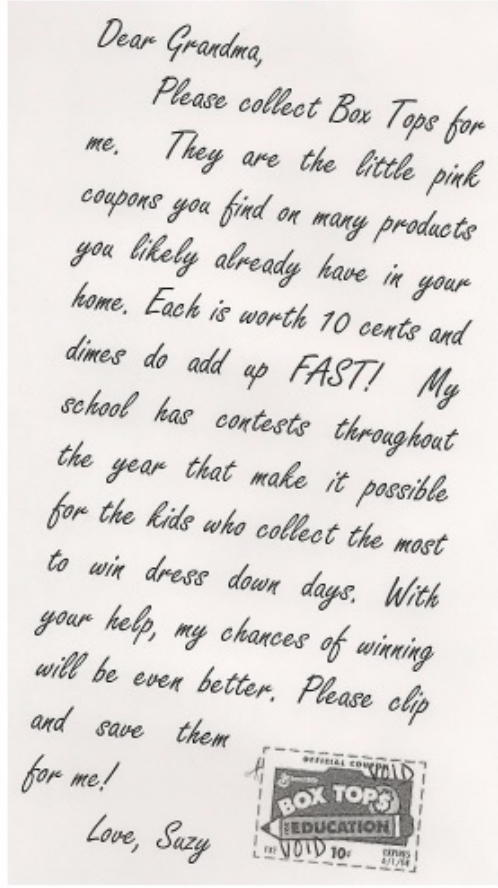 Dear Grandma,
Please collect Box Tops for
me. They are the little pink
coupons you find on many products
you likely already have in your
home. Each is worth 10 cents and
dimes do add up FAST! My
school has contests throughout
the year that make it possible
for the kids who collect the most
to win dress down days. With
your help, my chances of winning
will be even better. Please clip
and save them
for me!
Love, Suzy
OFFICIAL COUPON
VOID
BOX TOPS
FOR EDUCATION
VOID 10¢
EXPIRES